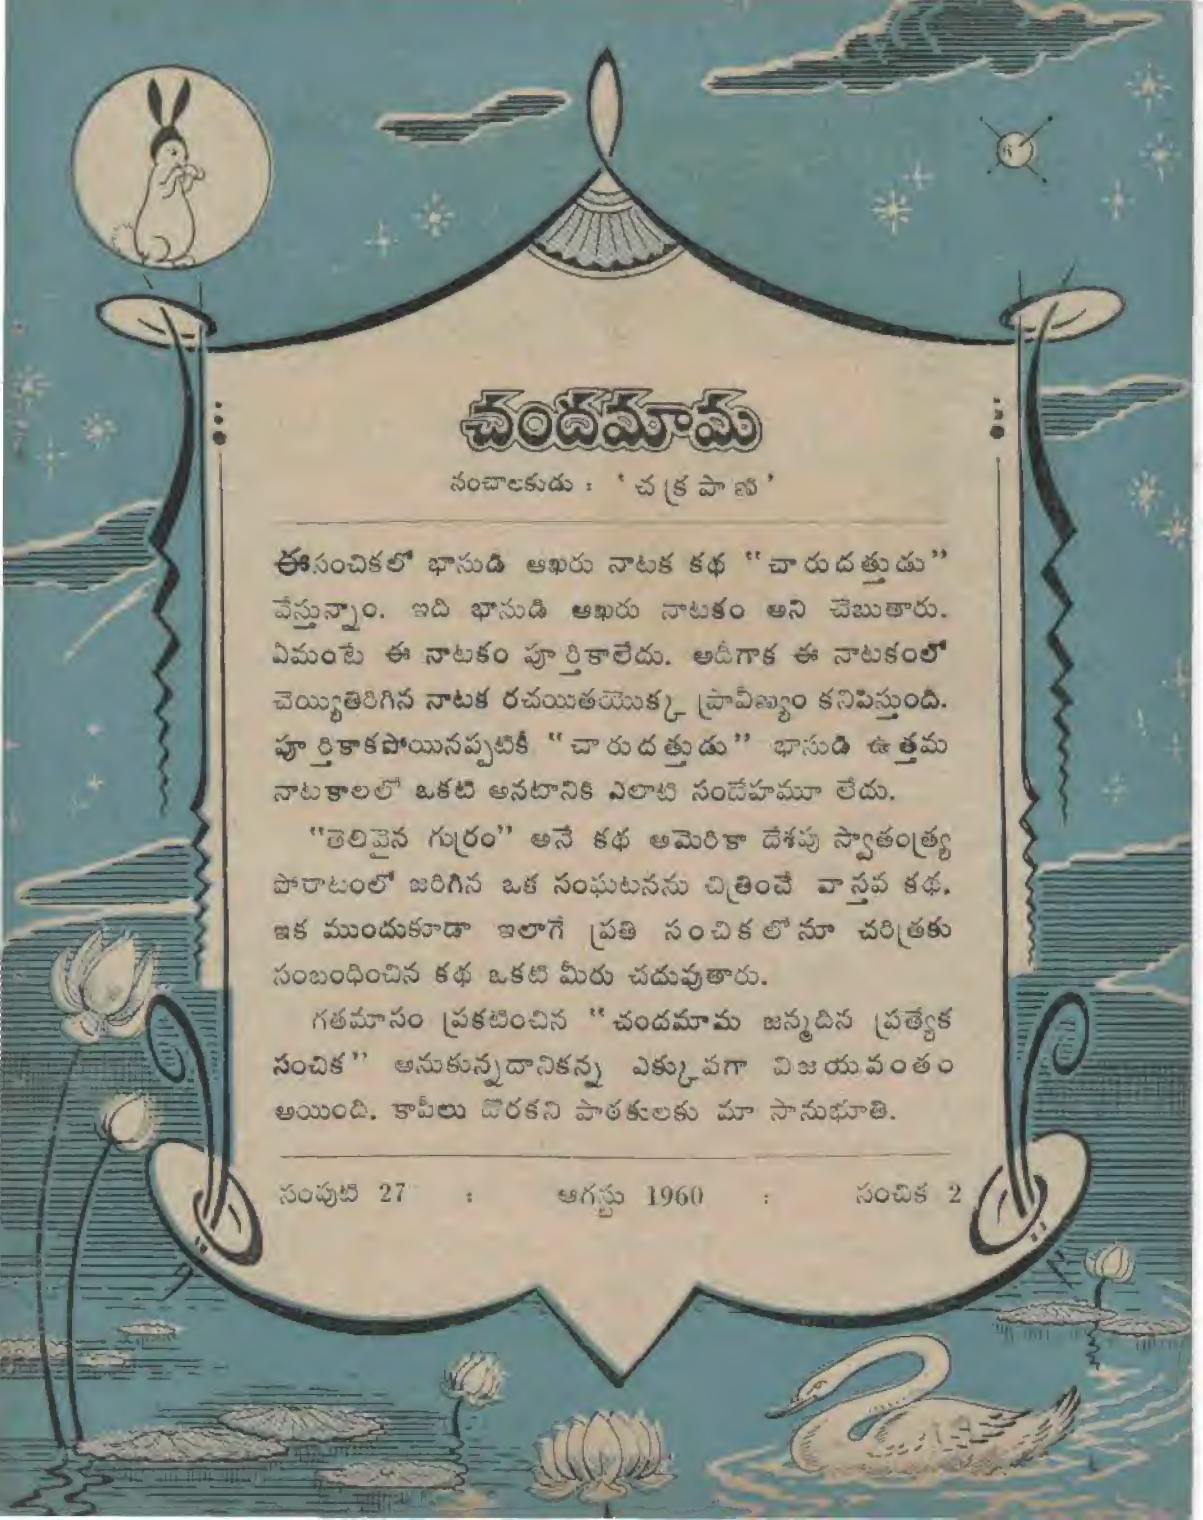 చందమామ
సంచాలకుడు : ‘చక్రపాణి’
ఈసంచికలో భాసుడి ఆఖరు నాటక కథ “చారుదత్తుడు”
వేస్తున్నాం. ఇది భాసుడి ఆఖరు నాటకం అని చెబుతారు.
ఏమంటే ఈ నాటకం పూర్తికాలేదు. అదీగాక ఈ నాటకంలో
చెయ్యితిరిగిన నాటక రచయితయొక్క ప్రావీణ్యం కనిపిస్తుంది.
పూర్తికాకపోయినప్పటికీ “చారుదత్తుడు” భాసుడి ఉత్తమ
నాటకాలలో ఒకటి అనటానికి ఎలాటి సందేహమూ లేదు.
“తెలివైన గుర్రం” అనే కథ అమెరికా దేశపు స్వాతంత్ర్య
పోరాటంలో జరిగిన ఒక సంఘటనను చిత్రించే వాస్తవ కథ.
ఇక ముందుకూడా ఇలాగే ప్రతి సంచికలోనూ చరిత్రకు
సంబంధించిన కథ ఒకటి మీరు చదువుతారు.
గతమాసం ప్రకటించిన “చందమామ జన్మదిన ప్రత్యేక
సంచిక” అనుకున్నదానికన్న ఎక్కువగా విజయవంతం
అయింది. కాపీలు దొరకని పాఠకులకు మా సానుభూతి.
సంపుటి 27 : ఆగస్టు 1960 : సంచిక 2